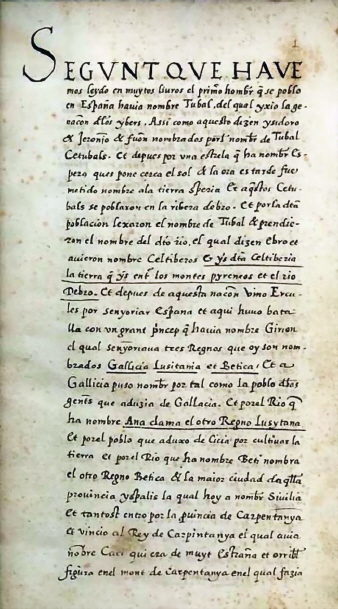 1
SEGVNT QVE HAVE
mos leydo en muytos liuros el primo hombr q̃ se poblo
en España hauia nombre Tubal, del qual yxio la ge-
nacon dlos ybers. Assi como aquesto dizen ysidoro
& Jeronjo & fuõn nombrados porl nombr de Tubal
Cetubals. Et depues por vna estrela q̃ ha nombr Es-
pero que se pone cerca el sol & la ora es tarde fue
metido nombre ala tierra speria Et aq̃stos Cetu-
bals se poblaron en la ribera debro. Et por la dta
poblacion lexaron el nombre de Tubal & prendie-
ron el nombre del dto rio, el qual dizen ebro et
auieron nombre Celtiberos & ys dta Celtiberia
la tierra q̃ ys ent los montes pyreneos et el rio
Debro. Et depues de aquesta nacon vino Ercu-
les por senyoriar Espana et aqui huuo bata
lla con vn grant pncep q̃ hauia nombr Girion
el qual senyoriaua tres Regnos que oy son nom-
brados Gallicia Lusitania et Betica: Et a
Gallicia puso nombr por tal como la poblo dlos
gents que aduzia de Gallacia. Et por el Rio q̃
ha nombre Ana clama el otro Regno Lusytana
Et por el poblo que aduxo de Cicia por cultiuar la
tierra Et por el Rio que ha nombre Beti nombra
el otro Regno Betica & la maior ciudad daq̃lla
prouincia yspalis la qual hoy a nombr Siuilia
Et tantost entro por la puincia de Carpentanya
& vincio al Rey de Carpintanya el qual auia
nõbre Caci qui era de muyt estraña et orribl
figura en el mont de Carpentanya en el qual fazia